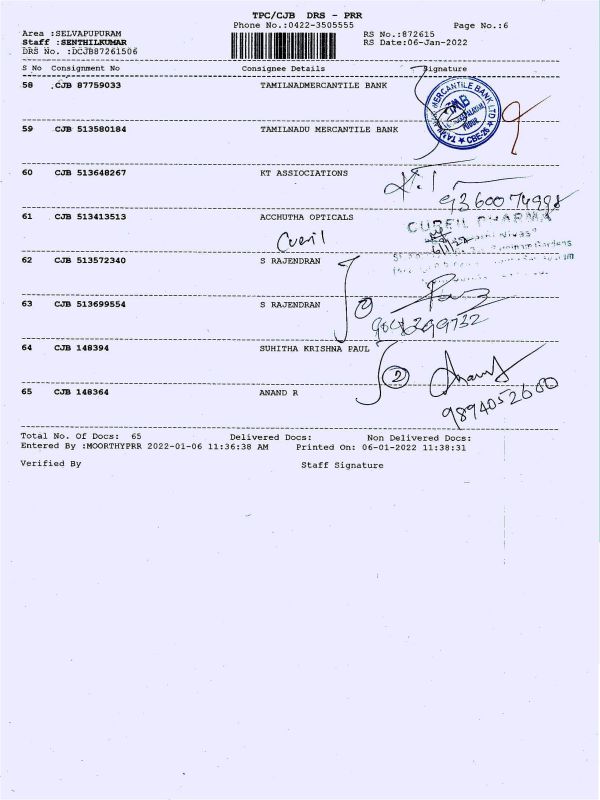 TPC/CJB DRS - PRR
Phone No.:0422-3505555
Page No.:6
Area :SELVAPUPURAM
RS No.:872615
Staff :SENTHILKUMAR
RS Date:06-Jan-2022
DRS No. :DCJB87261506
S No Consignment No Consignee Details Signature
58 CJB 87759033 TAMILNADMERCANTILE BANK
TAMILNAD MERCANTILE BANK LTD.
TMB
CBE-26
59 CJB 513580184 TAMILNADU MERCANTILE BANK
60 CJB 513648267 KT ASSIOCIATIONS
K.T
9360074998
61 CJB 513413513 ACCHUTHA OPTICALS
CUREIL PHARMA
62 CJB 513572340 S RAJENDRAN
63 CJB 513699554 S RAJENDRAN
2
64 CJB 148394 SUHITHA KRISHNA PAUL
2
65 CJB 148364 ANAND R
9894052600
Total No. Of Docs: 65 Delivered Docs: Non Delivered Docs:
Entered By :MOORTHYPRR 2022-01-06 11:36:38 AM Printed On: 06-01-2022 11:38:31
Verified By Staff Signature